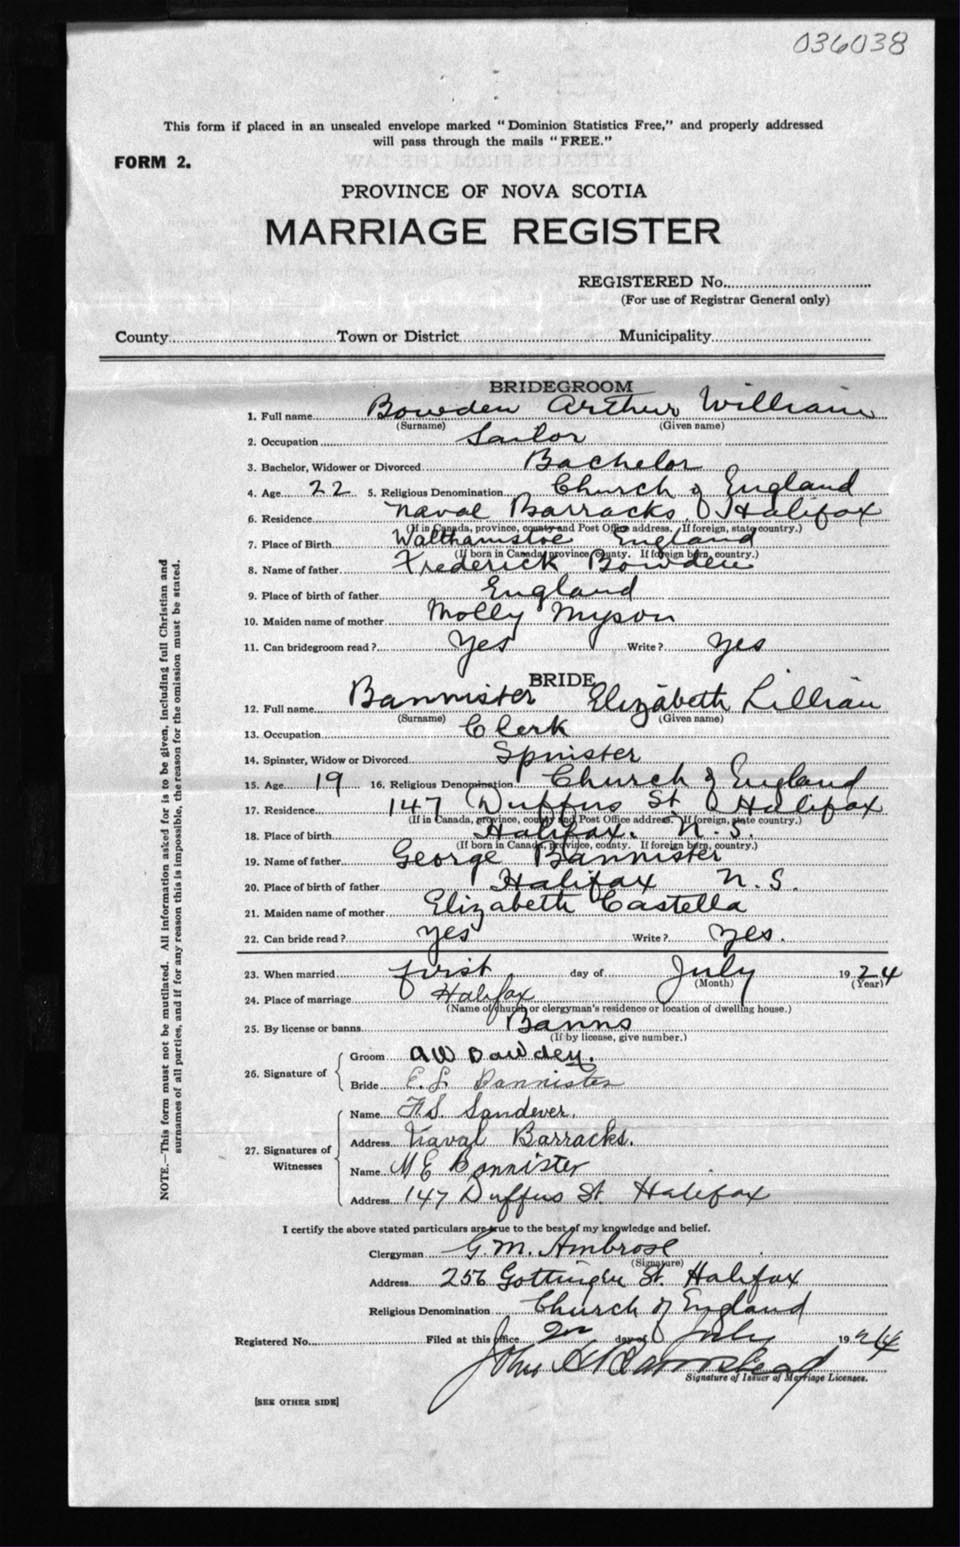 036038
This form if placed in an unsealed envelope marked "Dominion Statistics Free," and properly addressed
will pass through the mails "FREE."
FORM 2.
PROVINCE OF NOVA SCOTIA
MARRIAGE REGISTER
REGISTERED No.
(For use of Registrar General only)
County Town or District Municipality
BRIDEGROOM
1. Full name Bowden Arthur William
(Surname) (Given name)
2. Occupation Sailor
3. Bachelor, Widower or Divorced Bachelor
4. Age 22 5. Religious Denomination Church of England
6. Residence Naval Barracks, Halifax
(If in Canada, province, county and Post Office address. If foreign, state country.)
7. Place of Birth Walthamstoe England
(If born in Canada, province, county. If foreign born, country.)
8. Name of father Frederick Bowden
9. Place of birth of father England
10. Maiden name of mother Molly Myson
11. Can bridegroom read? Yes Write? Yes
BRIDE
12. Full name Bannister Elizabeth Lillian
(Surname) (Given name)
13. Occupation Clerk
14. Spinster, Widow or Divorced Spinster
15. Age 19 16. Religious Denomination Church of England
17. Residence 147 Duffus St Halifax
(If in Canada, province, county and Post Office address. If foreign, state country.)
18. Place of birth Halifax. N.S.
(If born in Canada, province, county. If foreign born, country.)
19. Name of father George Bannister
20. Place of birth of father Halifax N.S.
21. Maiden name of mother Elizabeth Castella
22. Can bride read? Yes Write? Yes.
23. When married first day of July 1924
(Month) (Year)
24. Place of marriage Halifax
(Name of church or clergyman's residence or location of dwelling house.)
25. By license or banns Banns
(If by license, give number.)
26. Signature of
Groom AW Bowden.
Bride E. L. Bannister
27. Signatures of Witnesses
Name Sandever.
Address Naval Barracks.
Name M E Bannister
Address 147 Duffus St Halifax
I certify the above stated particulars are true to the best of my knowledge and belief.
Clergyman G. M. Ambrose
(Signature)
Address 256 Gottingen St. Halifax
Religious Denomination Church of England
Registered No. Filed at this office 2nd day of July 1924
John
Signature of Issuer of Marriage Licenses.
[SEE OTHER SIDE]
NOTE.—This form must not be mutilated. All information asked for is to be given, including full Christian and
surnames of all parties, and if for any reason this is impossible, the reason for the omission must be stated.